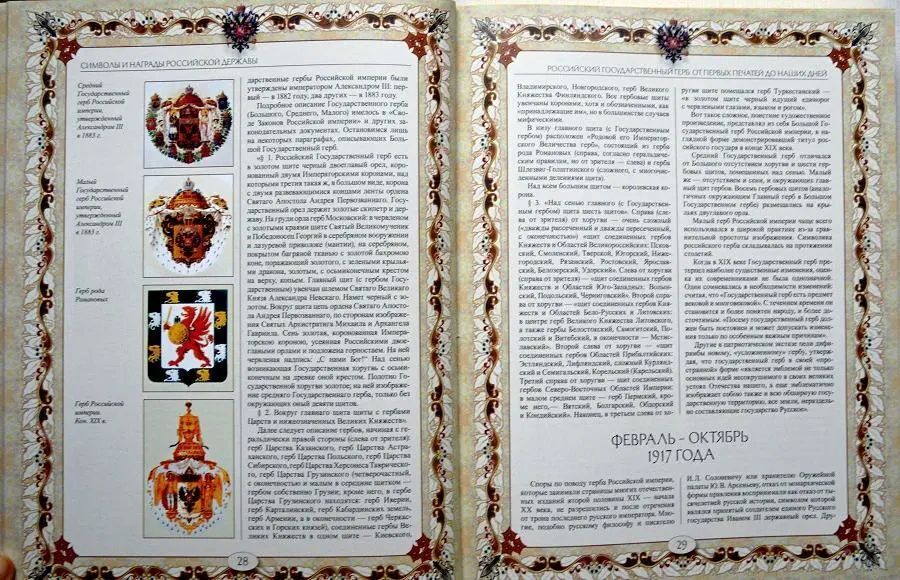 СИМВОЛЫ И НАГРАДЫ РОССИЙСКОЙ ДЕРЖАВЫ
Средний
Государственный
герб Российской
империи,
утвержденный
Александром III
в 1883 г.
Малый
Государственный
герб Российской
империи,
утвержденный
Александром III
в 1883 г.
Герб рода
Романовых
Герб Российской
империи.
Кон. XIX в.
дарственные гербы Российской империи были
утверждены императором Александром III: пер-
вый — в 1882 году, два других — в 1883 году.
Подробное описание Государственного герба
(Большого, Среднего, Малого) имелось в «Сво-
де Законов Российской империи» и других за-
конодательных документах. Остановимся лишь
на некоторых параграфах, описывающих Боль-
шой Государственный герб.
«§ 1. Российский Государственный герб есть
в золотом щите черный двоеглавый орел, коро-
нованный двумя Императорскими коронами, над
которыми третия такая ж, в большом виде, корона
с двумя развевающимися концами ленты ордена
Святаго Апостола Андрея Первозваннаго. Государ-
ственный орел держит золотые скипетр и дер-
жаву. На груди орла герб Московский: в червленом
с золотыми краями щите Святый Великомученик
и Победоносец Георгий в серебряном вооружении
и лазуревой приволоке (мантии), на серебряном,
покрытом багряной тканью с золотой бахромою
коне, поражающий золотого, с зелеными крылья-
ми дракона, золотым, с осьмиконечным крестом
на верху, копьем. Главный щит (с гербом Госу-
дарственным) увенчан шлемом Святаго Великаго
Князя Александра Невскаго. Намет черный с зо-
лотом. Вокруг щита цепь ордена Святаго Апостола
Андрея Первозваннаго, по сторонам изображе-
ния Святых Архистратига Михаила и Архангела
Гавриила. Сень золотая, коронованная Импера-
торскою короною, усеянная Российскими двое-
главыми орлами и подложена горностаем. На ней
червленая надпись: „С нами Бог!" Над сенью
возникающая Государственная хоругвь с осьми-
конечным на древке оной крестом. Полотно Го-
сударственной хоругви золотое; на ней изображе-
ние среднего Государственного герба, только без
окружающих оный девяти щитов.
§ 2. Вокруг главнаго щита щиты с гербами
Царств и нижеозначенных Великих Княжеств».
Далее следует описание гербов, начиная с ге-
ральдически правой стороны (слева от зрителя):
герб Царства Казанского, герб Царства Астра-
ханского, герб Царства Польского, герб Царства
Сибирского, герб Царства Херсонеса Таврическо-
го, герб Царства Грузинского (четверочастный,
с оконечностью и малым в середине щитком —
гербом собственно Грузии; кроме него, в гербе
Царства Грузинского находятся: герб Иверии,
герб Карталинский, герб Кабардинских земель,
герб Армении, а в оконечности — герб Черкас-
ских и Горских князей), соединенные гербы Ве-
ликих Княжеств в одном щите — Киевского,
28
РОССИЙСКИЙ ГОСУДАРСТВЕННЫЙ ГЕРБ: ОТ ПЕРВЫХ ПЕЧАТЕЙ ДО НАШИХ ДНЕЙ
Владимирского, Новгородского, герб Великого
Княжества Финляндского. Все гербовые щиты
увенчаны коронами, хотя и обозначенными, как
«принадлежащие им», но в большинстве случаев
мифическими.
В низу главного щита (с Государственным
гербом) расположен «Родовой его Император-
ского Величества герб», состоящий из герба
рода Романовых (справа, согласно геральдиче-
ским правилам, но от зрителя — слева) и герба
Шлезвиг-Голштинского (сложного, с многочис-
ленными делениями щита).
Над всем большим щитом — королевская ко-
рона.
§ 3. «Над сенью главного (с Государствен-
ным гербом) щита шесть щитов». Справа (сле-
ва от зрителя) от хоругви — очень сложный
(«дважды рассеченный и дважды пересеченный,
с оконечностью») «щит соединенных гербов
Княжеств и Областей Великороссийских: Псков-
ский, Смоленский, Тверской, Югорский, Ниже-
городский, Рязанский, Ростовский, Ярослав-
ский, Белозерский, Удорский». Слева от хоругви
(справа от зрителя) — «щит соединенных гербов
Княжеств и Областей Юго-Западных: Волын-
ский, Подольский, Черниговский». Второй справа
от хоругви — «щит соединенных гербов
Княжеств и Областей Бело-Русских и Литовских:
в центре герб Великого Княжества Литовского,
а также гербы Белостокский, Самогитский, По-
лотский и Витебский, в оконечности — Мстис-
лавский». Второй слева от хоругви — «щит
соединенных гербов Областей Прибалтийских:
Эстляндский, Лифляндский, сложный Курлянд-
ский и Семигальский, Корельский (Карельский).
Третий справа от хоругви — щит соединенных
гербов Северо-Восточных Областей Империи:
в малом среднем щите — герб Пермский, кро-
ме него,— Вятский, Болгарский, Обдорский
и Кондийский». Наконец, в третьем слева от хо-
ругви щите помещался герб Туркестанский —
«в золотом щите черный идущий единорог
с червлеными глазами, языком и рогом».
Вот такое сложное, поистине художественное
произведение, представлял из себя Большой Го-
сударственный герб Российской империи, в на-
глядной форме демонстрировавший титул рос-
сийского государя в конце XIX века.
Средний Государственный герб отличался
от Большого отсутствием хоругви и шести гер-
бовых щитов, помещенных над сенью. Малый
же — отсутствием и сени, и окружающих глав-
ный щит гербов. Восемь гербовых щитов (анало-
гичных окружающим Главный герб в Большом
Государственном гербе) размещались на кры-
льях двуглавого орла.
Малый герб Российской империи чаще всего
использовался в широкой практике из-за срав-
нительной простоты изображения. Символика
российского герба складывалась на протяжении
столетий.
Когда в XIX веке Государственный герб пре-
терпел наиболее существенные изменения, оцен-
ка их современниками не была однозначной.
Одни сомневались в необходимости изменений,
считая, что «Государственный герб есть предмет
вековой и многовековой. С течением времени он
становится и более понятен народу, и более до-
сточтимым. «Посему государственный герб дол-
жен быть постоянен и может допускать изменения
только по особенным важным причинам».
Другие в патриотическом экстазе пели дифи-
рамбы новому, «усложненному» гербу, утверж-
дая, что государственный герб в своей «про-
странной» форме «является эмблемой не только
основных идей многовекового из своих великих
устоев Отечества нашего, а еще эмблематично
изображает собою также и всю обширную госу-
дарственную территорию, все земли, нераздель-
но составляющие государство Русское».
ФЕВРАЛЬ – ОКТЯБРЬ
1917 ГОДА
Споры по поводу герба Российской империи,
которые занимали страницы многих отечествен-
ных изданий второй половины XIX — начала
XX века, не разрешились и после отречения
от трона последнего русского императора. Мно-
гие, подобно русскому философу и писателю
И.Л. Солоневичу или хранителю Оружейной
палаты Ю.В. Арсеньеву, отказ от монархической
формы правления воспринимали как отказ от ты-
сячелетней русской истории, символом которой
являлся принятый создателем единого Русского
государства Иваном III державный орел. Дру-
29